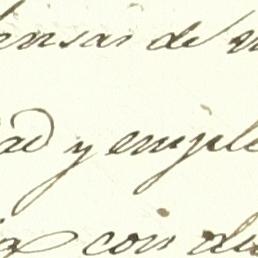 ensas de
ad y emple
con du